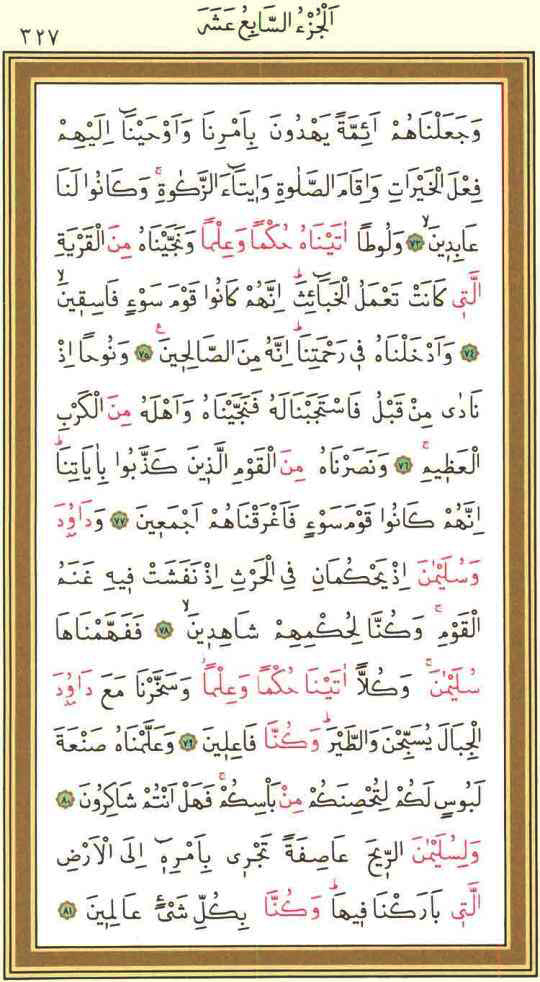 اَلْجُزْءُ السَّابِعُ عَشَرَ
٣٢٧
وَجَعَلْنَاهُمْ اَئِمَّةً يَهْدُونَ بِاَمْرِنَا وَاَوْحَيْنَٓا اِلَيْهِمْ
فِعْلَ الْخَيْرَاتِ وَاِقَامَ الصَّلٰوةِ وَا۪يتَٓاءَ الزَّكٰوةِۚ وَكَانُوا لَنَا
عَابِد۪ينَۙ ﴿٧٣﴾ وَلُوطًا اٰتَيْنَاهُ حُكْمًا وَعِلْمًا وَنَجَّيْنَاهُ مِنَ الْقَرْيَةِ
الَّت۪ي كَانَتْ تَعْمَلُ الْخَبَٓائِثَۜ اِنَّهُمْ كَانُوا قَوْمَ سَوْءٍ فَاسِق۪ينَۙ
﴿٧٤﴾ وَاَدْخَلْنَاهُ ف۪ي رَحْمَتِنَاۜ اِنَّهُ مِنَ الصَّالِح۪ينَ۟ ﴿٧٥﴾ وَنُوحًا اِذْ
نَادٰى مِنْ قَبْلُ فَاسْتَجَبْنَا لَهُ فَنَجَّيْنَاهُ وَاَهْلَهُ مِنَ الْكَرْبِ
الْعَظ۪يمِۚ ﴿٧٦﴾ وَنَصَرْنَاهُ مِنَ الْقَوْمِ الَّذ۪ينَ كَذَّبُوا بِاٰيَاتِنَاۜ
اِنَّهُمْ كَانُوا قَوْمَ سَوْءٍ فَاَغْرَقْنَاهُمْ اَجْمَع۪ينَ ﴿٧٧﴾ وَدَاوُ۫دَ
وَسُلَيْمٰنَ اِذْ يَحْكُمَانِ فِي الْحَرْثِ اِذْ نَفَشَتْ ف۪يهِ غَنَمُ
الْقَوْمِۚ وَكُنَّا لِحُكْمِهِمْ شَاهِد۪ينَۙ ﴿٧٨﴾ فَفَهَّمْنَاهَا
سُلَيْمٰنَۚ وَكُلًّا اٰتَيْنَا حُكْمًا وَعِلْمًاۘ وَسَخَّرْنَا مَعَ دَاوُ۫دَ
الْجِبَالَ يُسَبِّحْنَ وَالطَّيْرَۜ وَكُنَّا فَاعِل۪ينَ ﴿٧٩﴾ وَعَلَّمْنَاهُ صَنْعَةَ
لَبُوسٍ لَكُمْ لِتُحْصِنَكُمْ مِنْ بَأْسِكُمْۚ فَهَلْ اَنْتُمْ شَاكِرُونَ ﴿٨٠﴾
وَلِسُلَيْمٰنَ الرّ۪يحَ عَاصِفَةً تَجْر۪ي بِاَمْرِه۪ٓ اِلَى الْاَرْضِ
الَّت۪ي بَارَكْنَا ف۪يهَاۜ وَكُنَّا بِكُلِّ شَيْءٍ عَالِم۪ينَ ﴿٨١﴾